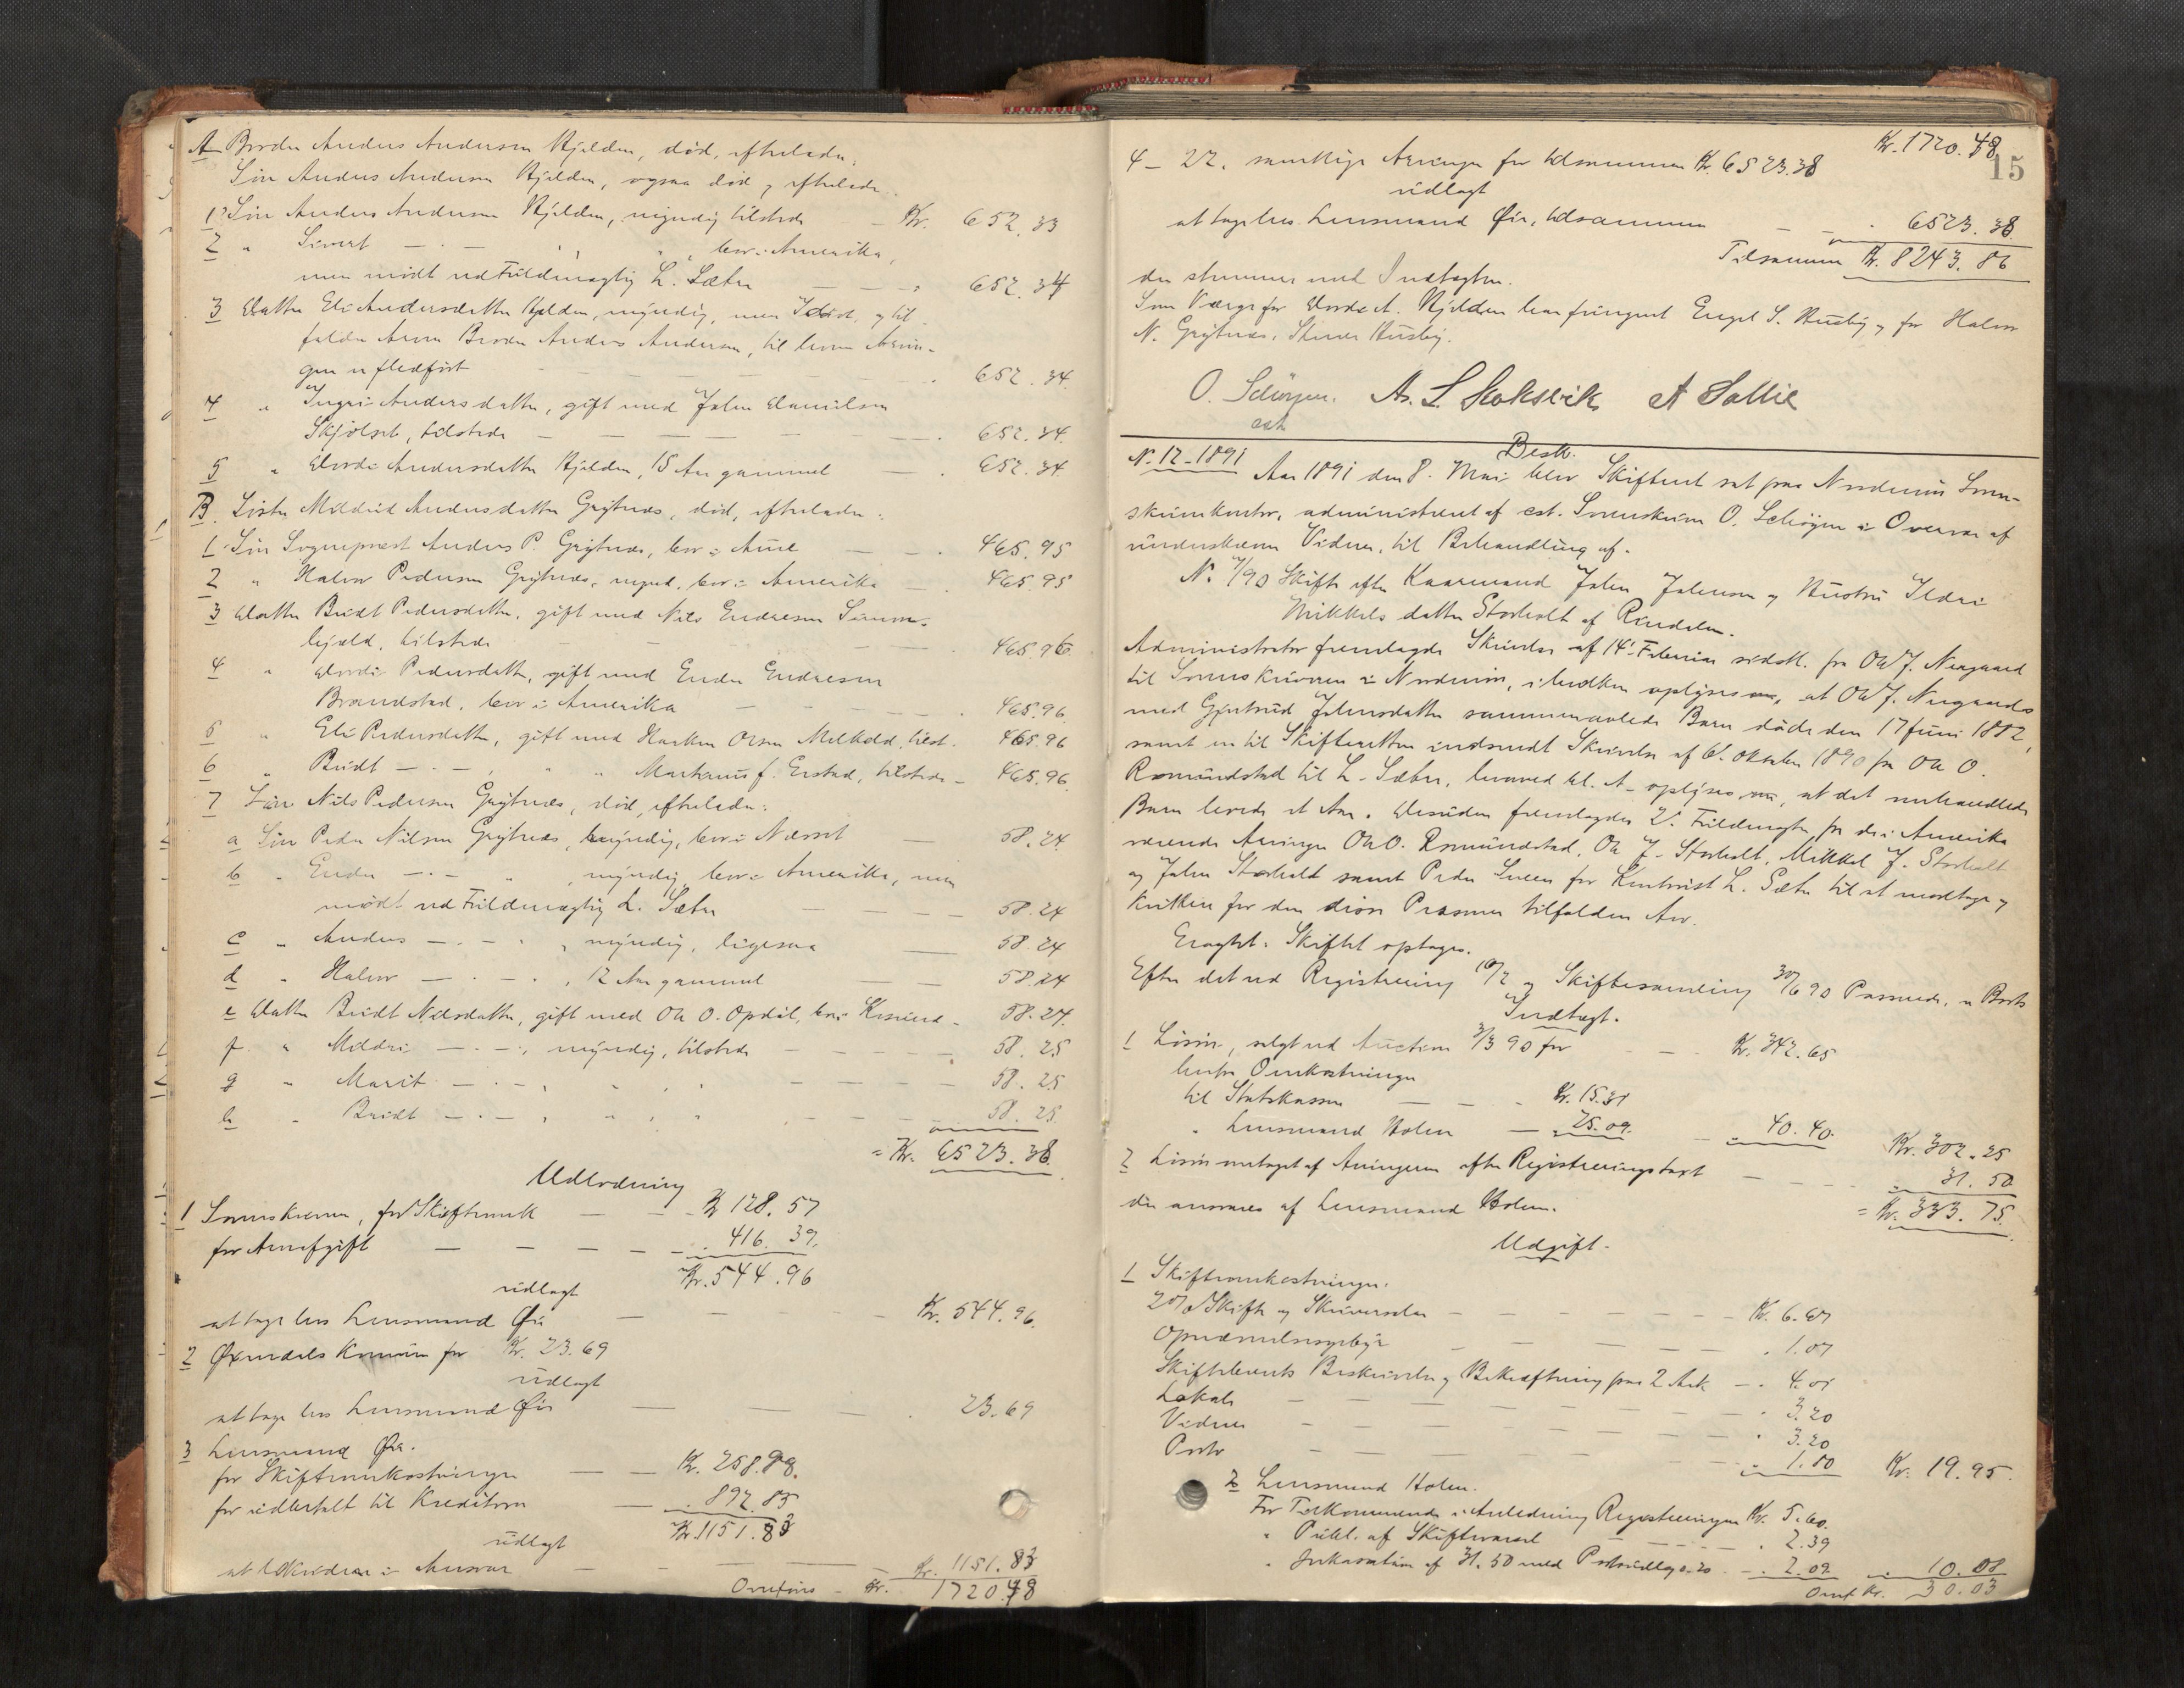 A Broder Anders Andersen Hjelden, død, efterlader:
Søn Anders Andersen Hjelden, ogsaa død, efterlader
1. Søn Anders Andersen Hjelden, myndig tilstede – Kr. 652.33
2 " Sivert — · — " " bor i Amerika,
men mødt ved Fuldmægtig L. Sæter — — 652.34
3 Datter Eli Andersdatter Hjelden, myndig, men og til
falder Arven Broder Anders Andersen, til hvem Arvin-
gen er fledført — 652.34.
4 " Ingri Andersdatter, gift med John Danielsen
Skjølset, tilstede — — — — 652.34.
5 " Dordi Andersdatter Hjelden, 15 Aar gammel — 652.34.
B. Søster Mildrid Andersdatter Grytnæs, død, efterlader:
1 Søn Sogneprest Anders P. Grytnæs, bor i Aure — — 465.95
2 " Halvor Pedersen Grytnæs, mynd. bor i Amerika — 465.95
3 Datter Beret Pedersdatter, gift med Nils Endresen
tilstede — — 465.96
4 " Dordi Pedersdatter, gift med Endre Endresen
Brandstad, bor i Amerika — — 465.96.
5 " Eli Pedersdatter, gift med Haaken Olsen tilst. 465.96
6 " Beret — · — , " " J. Erstad, tilstede – 465.96.
7 Søn Nils Pedersen Grytnæs, død, efterlader:
a Søn Peder Nilsen Grytnæs, myndig, bor i Nesset — 58.24.
b " Endre — · — " , myndig, bor i Amerika, men
mødt ved Fuldmægtig L. Sæter — — 58.24
c " Anders — · — " , myndig, ligesaa — 58.24
d " Halvor — · — , 12 Aar gammel — — 58.24
e Datter Beret Nilsdatter, gift med Ole O. Opdøl, bor i – 58.24.
f " Mildri — · — , myndig, tilstede — — 58.25
g " Marit — · — , " , " — — — 58.25
h " Beret — · — , " , " — — — 58.25.
= Kr. 6523.38
Udlodning
1 Sorenskriveren, for Skiftesmælk — — Kr 128.57
for Arveafgift — — — — 416.39.
Kr. 544.96
udlagt
at tage hos Lensmand Øie — — — Kr. 544.96.
2 Øxendals Kommune for Kr. 23.69
udlagt
at tage hos Lensmand Øie — — — 23.69
3 Lensmand Øie.
for Skifteomkostninger — — Kr. 258.98.
for udbetalt til Kreditorer — 892.85
Kr. 1151.83
udlagt
at likvidere i Ansvar — — Kr. 1151.83
Overføres – Kr. 1720.48
Kr. 1720.48
15
4 – 22. samtlige Arvinger for tilsammen Kr. 6523.38
udlagt
at tage hos Lensmand Øie, tilsammen — — 6523.38.
Tilsammen Kr. 8243.86
der stemmer med Indtægten.
Som Værge for Dordi A. Hjelden har fungeret Engel S. Husby og for Halvor
N. Grytnæs: Husby.
O. Schøyen. As. L. Stokseik A Sollie
cst
Besk.
N. 12 – 1891 Aar 1891 den 8. Mai blev Skifteret sat paa Nordmøre Soren-
skriverkontor, administreret af cst. Sorenskriver O. Schøyen i Overvær af
underskrevne Vidner, til Behandling af.
N. 7/90 Skifte efter Kaarmand John Johnsen og Hustru Ildri
Mikkelsdatter Storholt af Rindalen.
Administrator fremlagde Skrivelse af 14. Februar sidstl. fra Ole J. Nergaard
til Sorenskriveren i Nordmøre, i hvilken oplyses, at Ole J. Nergaards
med Gjertrud Johnsdatter sammenavlede Barn døde den 17 Juni 1882,
samt en til Skifteretten indsendt Skrivelse af 6. Oktober 1890 fra Ole O.
Romundstad til L. Sæter, hvorved bl. A. oplyses, at det omhandlede
Barn levede et Aar. Desuden fremlagdes 2. Fuldmagter fra de i Amerika
værende Arvinger Ole O. Romundstad, Ole J. Storholt, Mikkel J. Storholt
og John Storholt samt Peder Sveen for Kontorist L. Sæter til at modtage og
kvittere for den disse Personer tilfaldne Arv.
Eragtet: Skiftet optages.
Efter det ved Registrering 10/2 og Skiftesamling 30/6 90 Passerede, er Boets
Indtægt.
1 Løsøre, solgt ved Auction 3/3 90 for — — Kr. 342.65
herfra Omkostninger
til Statskassen — — – Kr. 15.31
" Lensmand Holen — 25.09. — 40.40. Kr. 302.25
2 Løsøre modtaget af Arvingerne efter Registreringstaxt — — — 31.50
der ansvares af Lensmand Holen. = Kr. 333.75.
Udgift.
1 Skifteomkostninger.
2% Skifte og Skriversalær — — — — Kr. 6.67
Opnævnelsesgebyr — — — — 1.07
Skiftebrevets Beskrivelse og Bekræftning paa 2 Ark — 4.01
Lokale — — — — — 3.20
Vidner — — — — — 3.20
Porto — — — — — 1.80 Kr. 19.95.
2 Lensmand Holen.
For Tilkommende i Anledning Registreringen Kr. 5.60.
" Publ. af Skiftevarsel — — — 2.39
" Inkassation af 31.50 med Portoudlæg 0.20 — 2.09 10.08
Overf. Kr. 30.03